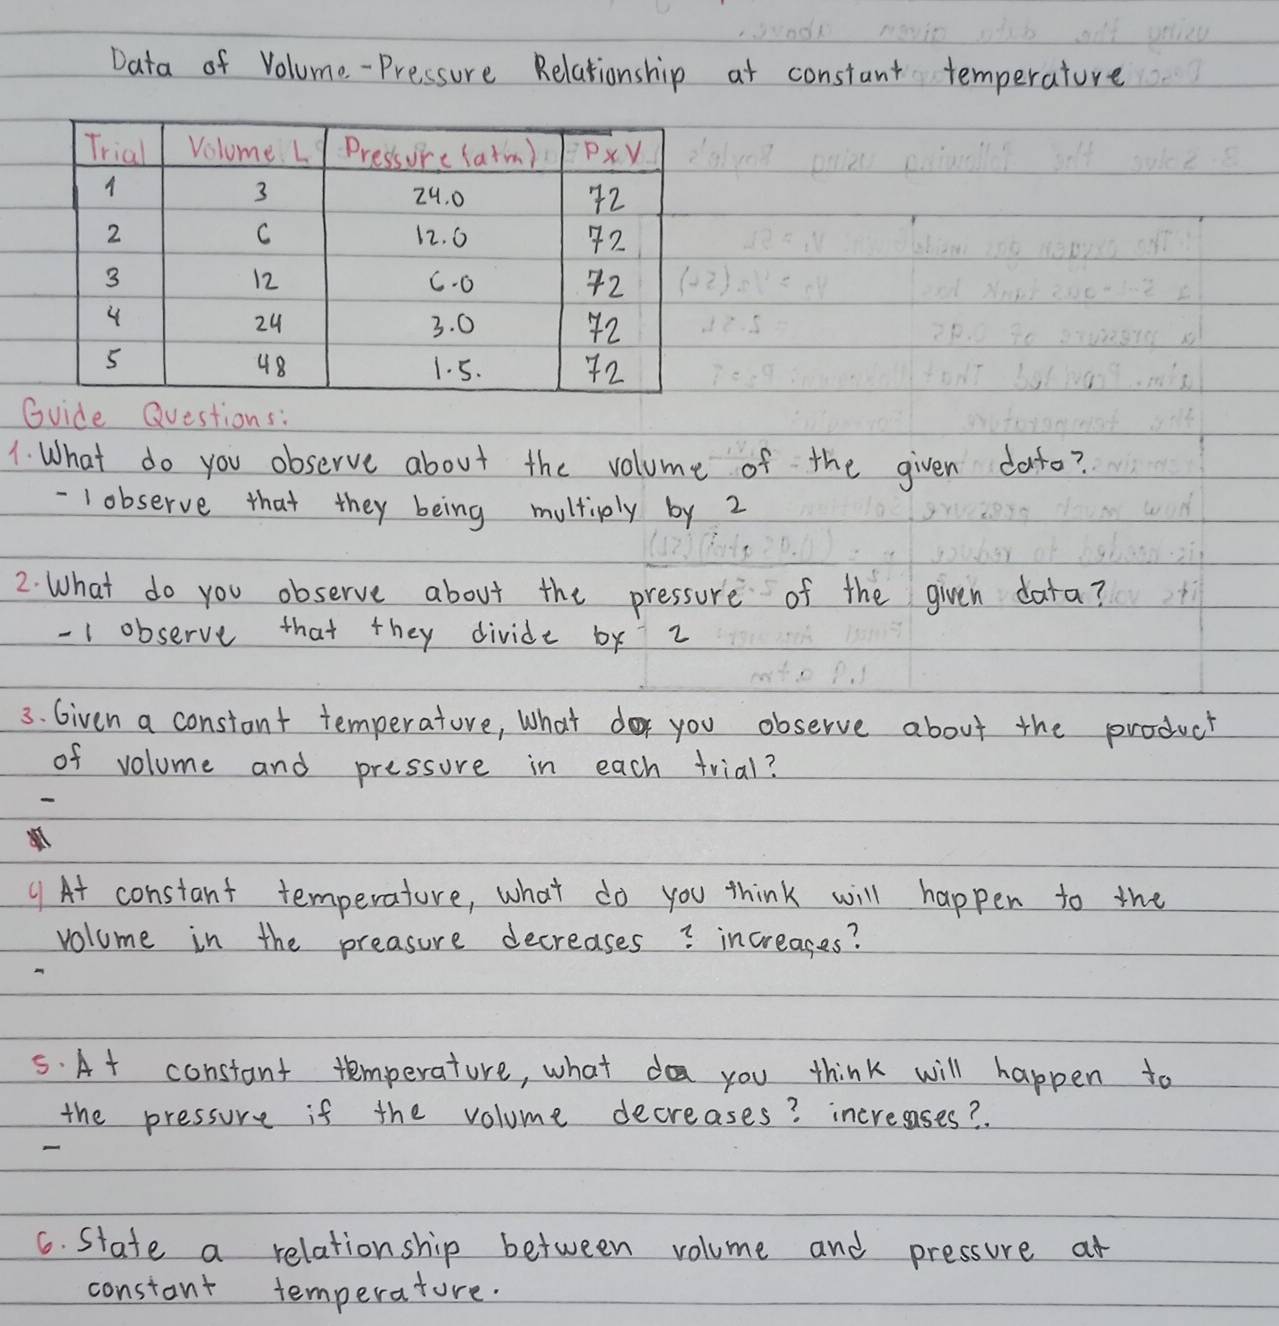 Data of Volume-Pressure Relationship at constant temperature
Trial Volume L Pressure (atm) P x V
1 3 24.0 72
2 6 12.0 72
3 12 6.0 72
4 24 3.0 72
5 48 1.5. 72
Guide Questions:
1. What do you observe about the volume of the given data?
- I observe that they being multiply by 2
2. What do you observe about the pressure of the given data?
- I observe that they divide by 2
3. Given a constant temperature, What do you observe about the product
of volume and pressure in each trial?
-
4 At constant temperature, what do you think will happen to the
volume in the preasure decreases ? increases?
-
5. At constant temperature, what do you think will happen to
the pressure if the volume decreases? increases?.
-
6. State a relationship between volume and pressure at
constant temperature.